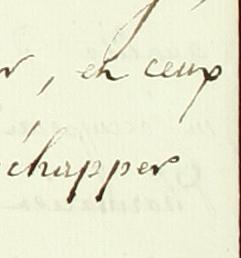 r, en ceux
échapper